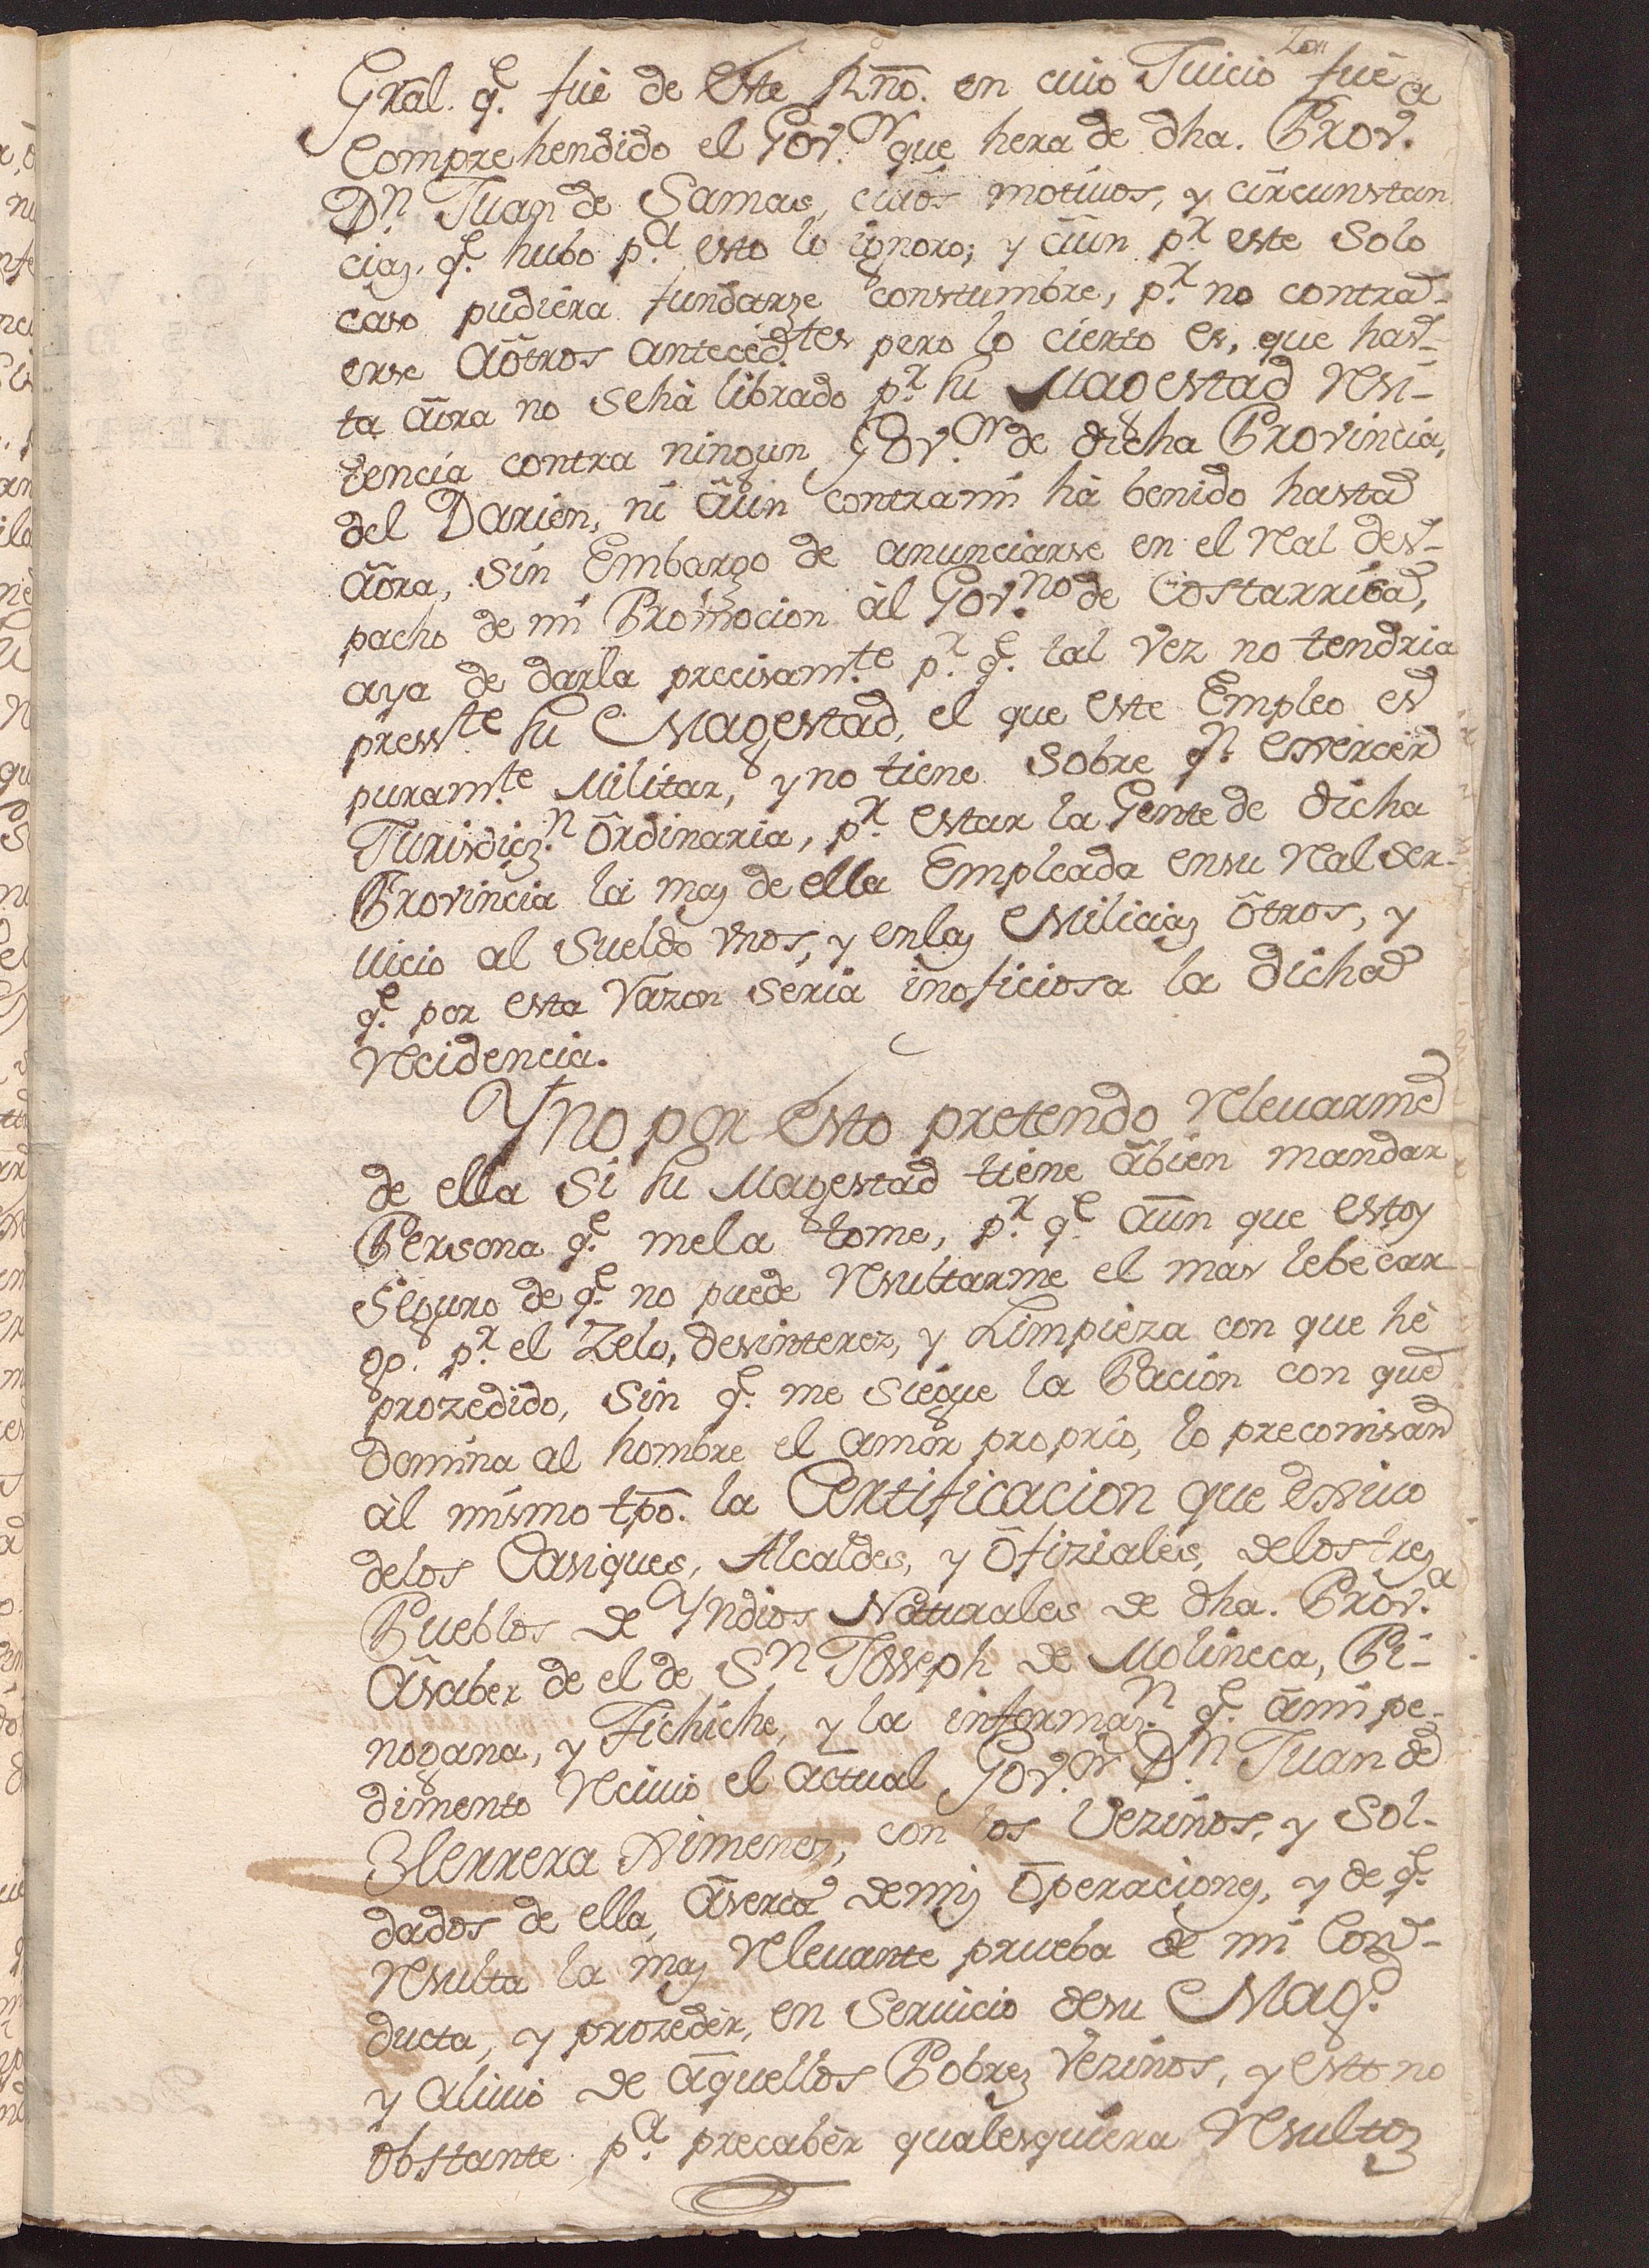 Gral. q.e fuè de este Rño. en cuio Juicio fuè
Comprehendido el Gov.or que hera de dha. Prov.a
D.n Juan de Samas, cuios motiuos, y circunstan
cias, q.e hubo p.a esto lo ignoro; y aun p.r este solo
caso pudiera fundarse constumbre, p.r no contra-
erse a otros anteced.tes pero lo cierto es, que has-
ta aora no se hà librado p.r su Magestad Resi-
dencia contra ningun Gov.or de dicha Provincia,
del Darien, ni aun contra mi hà benido hasta
aora, sin Embargo de anunciarse en el Real des-
pacho de mi Promocion àl Gov.no de Costarrica,
aya de darla precisam.te p.r q.e tal vez no tendria
press.te su Magestad, el que este Empleo es
puram.te Militar, y no tiene sobre q.n exercer
Jurisdicz.n ordinaria, p.r estar la Gente de dicha
Provincia la mas de ella Empleada en su Real ser-
uicio al sueldo vnos, y en las Milicias otros, y
q.e por esta Razon seria inoficiosa la dicha
Recidencia.
Y no por esto pretendo Releuarme
de ella si su Magestad tiene abien mandar
Persona q.e me la tome, p.r q.e aun que estoy
seguro de q.e no puede Resultarme el mas lebe car
go. p.r el Zelo, desinterez, y Limpieza con que hè
prozedido, sin q.e me siegue la Pacion con que
domina al hombre el amor proprio, lo preconisan
àl mismo tpo. la Certificacion que exsiuo
de los Casiques, Alcaldes, y ofiziales, de los tres
Pueblos de Yndios Naturales de dha. Prov.a
a saber de el de S.n Joseph de Molineca, Pi-
nogana, y Fichiche, y la informaz.n q.e a mi pe-
dimento Reciuio el actual Gov.or D.n Juan de
Herrera Ximenez, con los Vezinos, y Sol-
dados de ella, aserca de mis operaciones, y de q.e
Resulta la mas Releuante prueba de mi Con-
ducta, y prozeder, en Seruicio de su Mag.d
y aliuio de aquellos Pobres Vezinos, y esto no
obstante p.a precaber qualesquiera Resultos